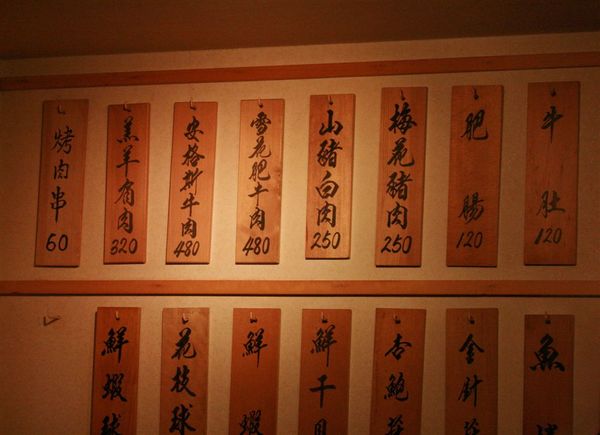 烤肉串 60
羔羊肩肉 320
安格斯牛肉 480
雪花肥牛肉 480
山豬白肉 250
梅花豬肉 250
肥腸 120
牛肚 120
鮮蝦球
花枝球
鮮蝦
鮮干貝
杏鮑菇
金針菇
魚